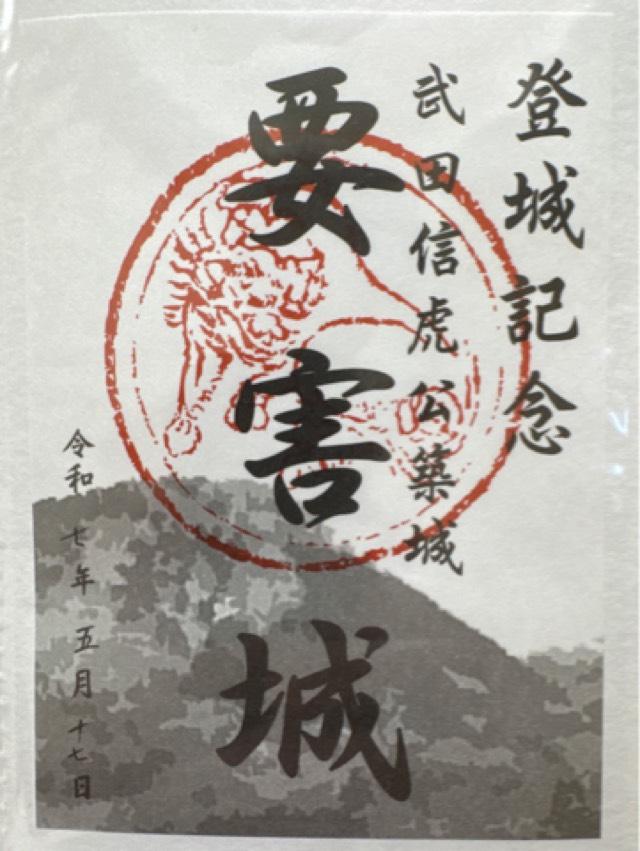 登城記念
武田信虎公築城
要害城
令和七年五月十七日